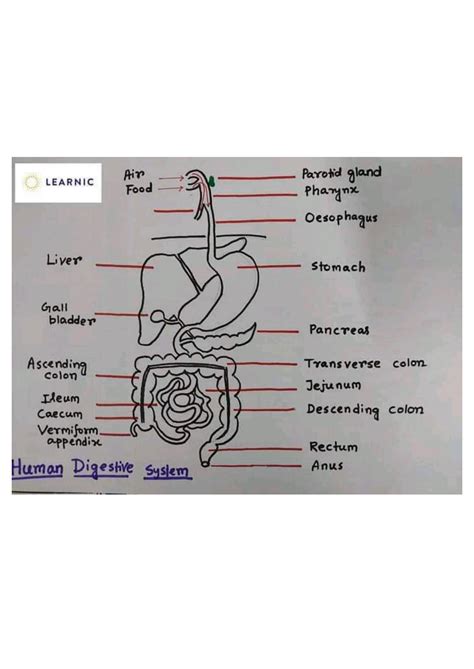 LEARNIC
Air
Food
Parotid gland
Pharynx
Oesophagus
Liver
Stomach
Gall
bladder
Pancreas
Ascending
colon
Transverse colon
Jejunum
Ileum
Descending colon
Caecum
Vermiform
appendix
Rectum
Anus
Human Digestive System